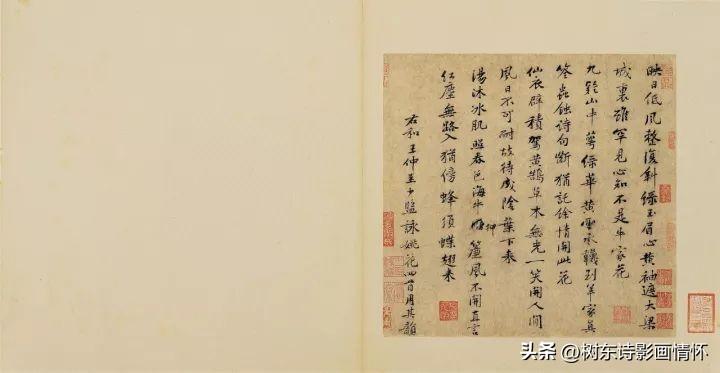 映日低風整復斜綠玉眉心黃袖遮大梁
城裏雖罕見心知不是牛家花
九疑山中萼綠華黃雲承韈到羊家真
筌蟲蝕詩句斷猶託餘情開此花
仙衣襞積駕黃鵠草木無光一笑開人間
風日不可耐故待成陰葉下來
湯沐冰肌照春色海牛押簾風不開直言
紅塵無路入猶傍蜂須蝶翅來
右和王仲至少監詠姚花四首用其韻
头条 @树东诗影画情怀